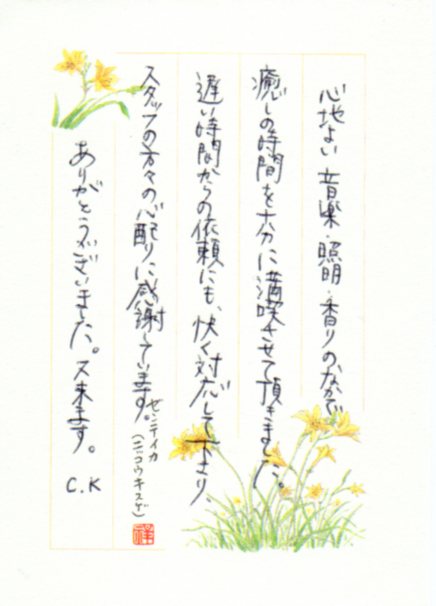 心地よい音楽・照明・香りのなかで
癒しの時間を十分に満喫させて頂きました。
遅い時間からの依頼にも、快く対応して下さり、
スタッフの方々の心配りに感謝しています。
ありがとうございました。又来ます。
C.K
ゼンテイカ
(ニッコウキスゲ)